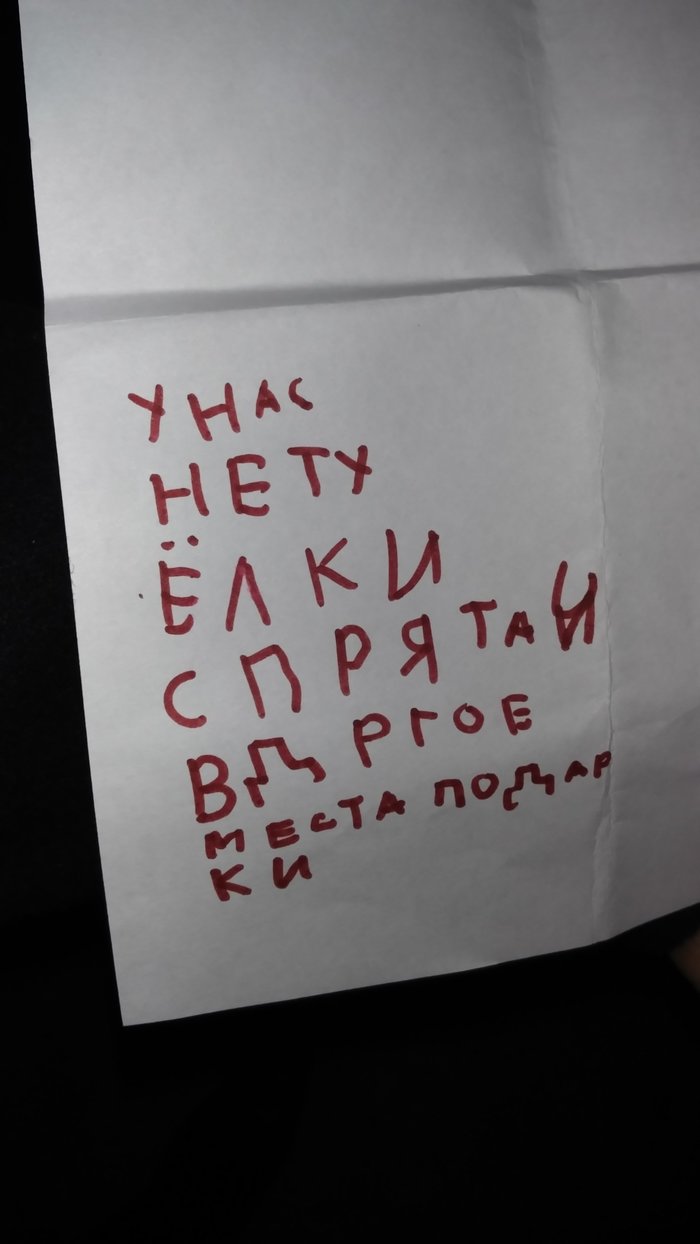 У НАС
НЕТУ
ЁЛКИ
СПРЯТАЙ
В ДРГОЕ
МЕСТА ПОДАР
КИ